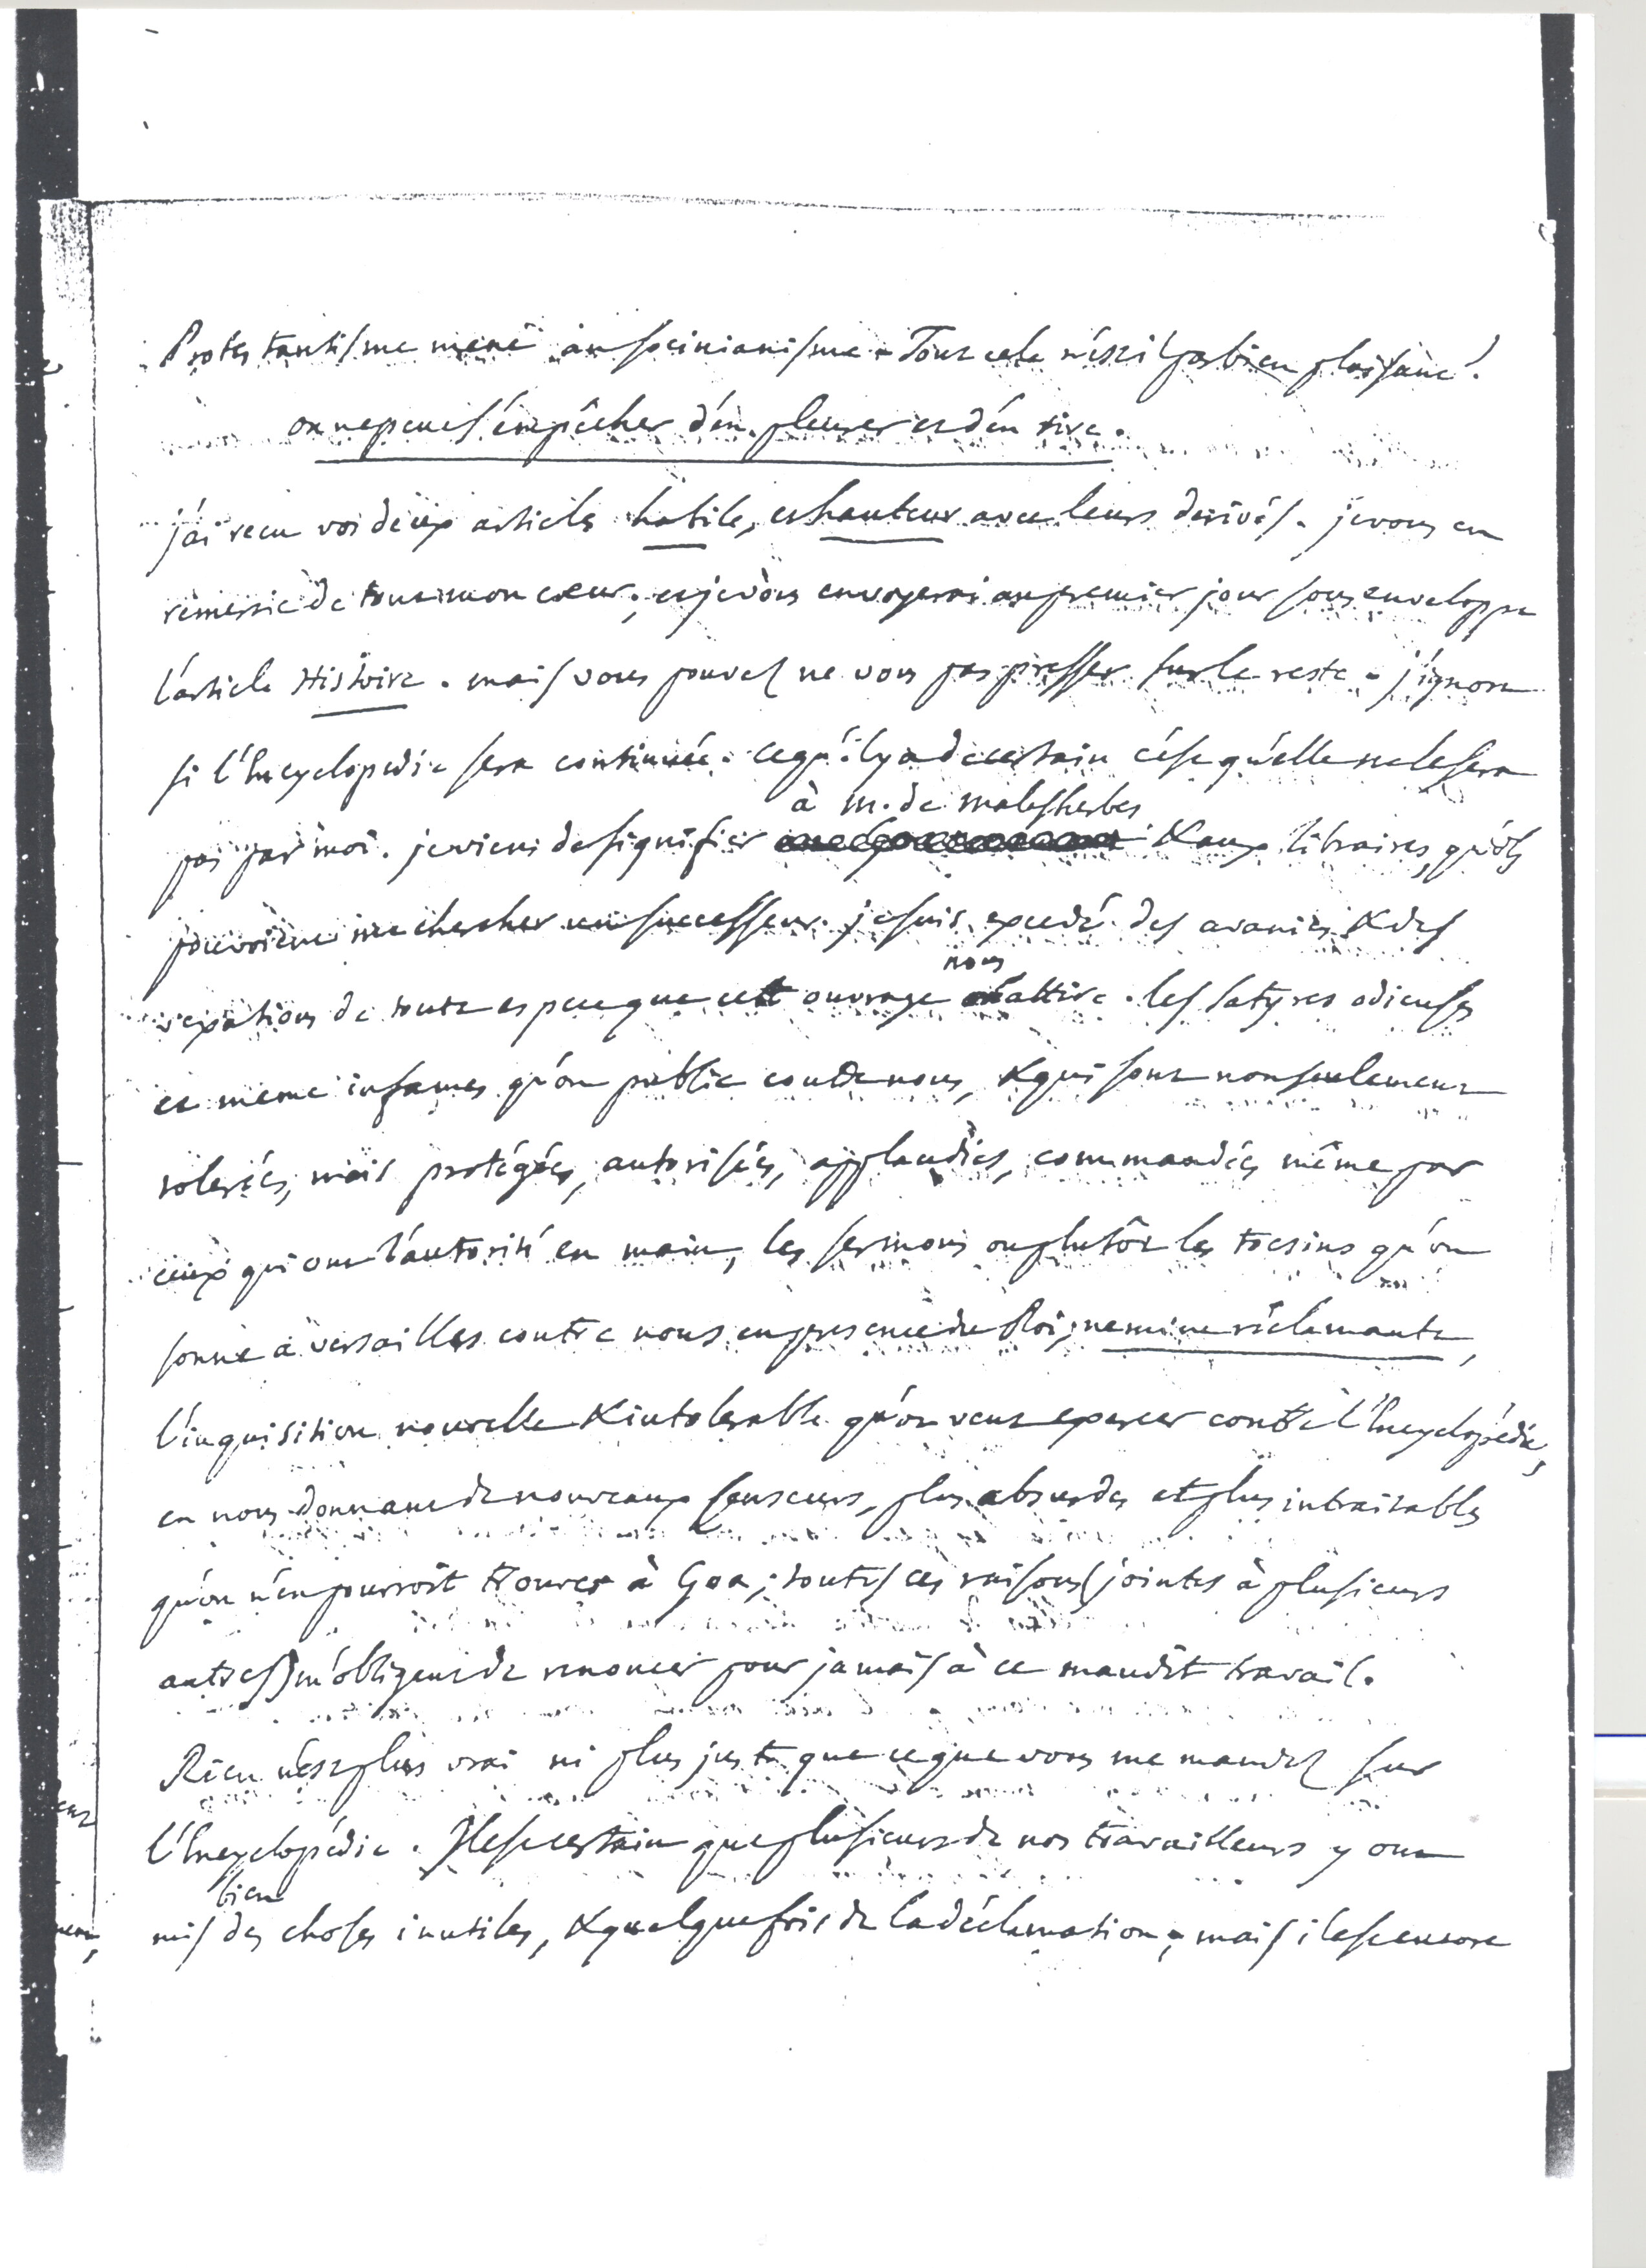 Protestantisme mene au socinianisme. Tout cela n'est il pas bien plaisant?
on ne peut s'empêcher d'en pleurer et d'en rire.
j'ai recu vos deux articles habile, et hauteur avec leurs derivés. je vous en
remercie de tout mon cœur; et je vous envoyerai au premier jour sous enveloppe
l'article Histoire. mais vous pouvez ne vous pas presser sur le reste. j'ignore
si l'Encyclopedie sera continuée. ce qu'il y a de certain c'est qu'elle ne le sera
à m. de malesherbes
pas par moi. je viens de signifier & aux libraires, qu'ils
pouvoient me chercher un successeur. je suis excedé des avanies & des
nous
vexations de toute espece que cet ouvrage attire. les satyres odieuses
et meme infames qu'on publie contre nous, & qui sont non seulement
tolerées, mais protégées, autorisées, applaudies, commandées même par
ceux qui ont l'autorité en main, les sermons ou plutôt les tocsins qu'on
sonne à versailles contre nous en presence du Roi, nemine reclamante,
l'inquisition nouvelle & intolerable qu'on veut exercer contre l'Encyclopédie,
en nous donnant de nouveaux censeurs, plus absurdes et plus intraitables
qu'on n'en pourroit trouver à Goa; toutes ces raisons (jointes à plusieurs
autres) m'obligent de renoncer pour jamais à ce maudit travail.
Rien n'est plus vrai ni plus juste que ce que vous me mandez sur
l'Encyclopédie. Il est certain que plusieurs de nos travailleurs y ont
bien
mis des choses inutiles, & quelquefois de la déclamation; mais il est encore